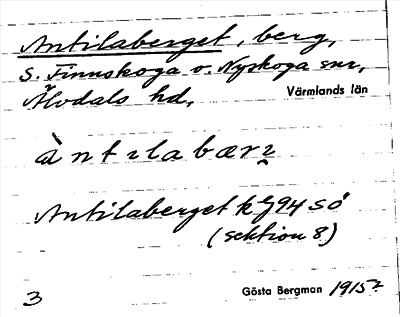 Antilaberget, berg,
S. Finnskoga o. Nyskoga snr,
Älvdals hd,
Värmlands län
àntılabærı
Antilaberget k Bl 94 SÖ
(sektion 8)
3
Gösta Bergman 1915?